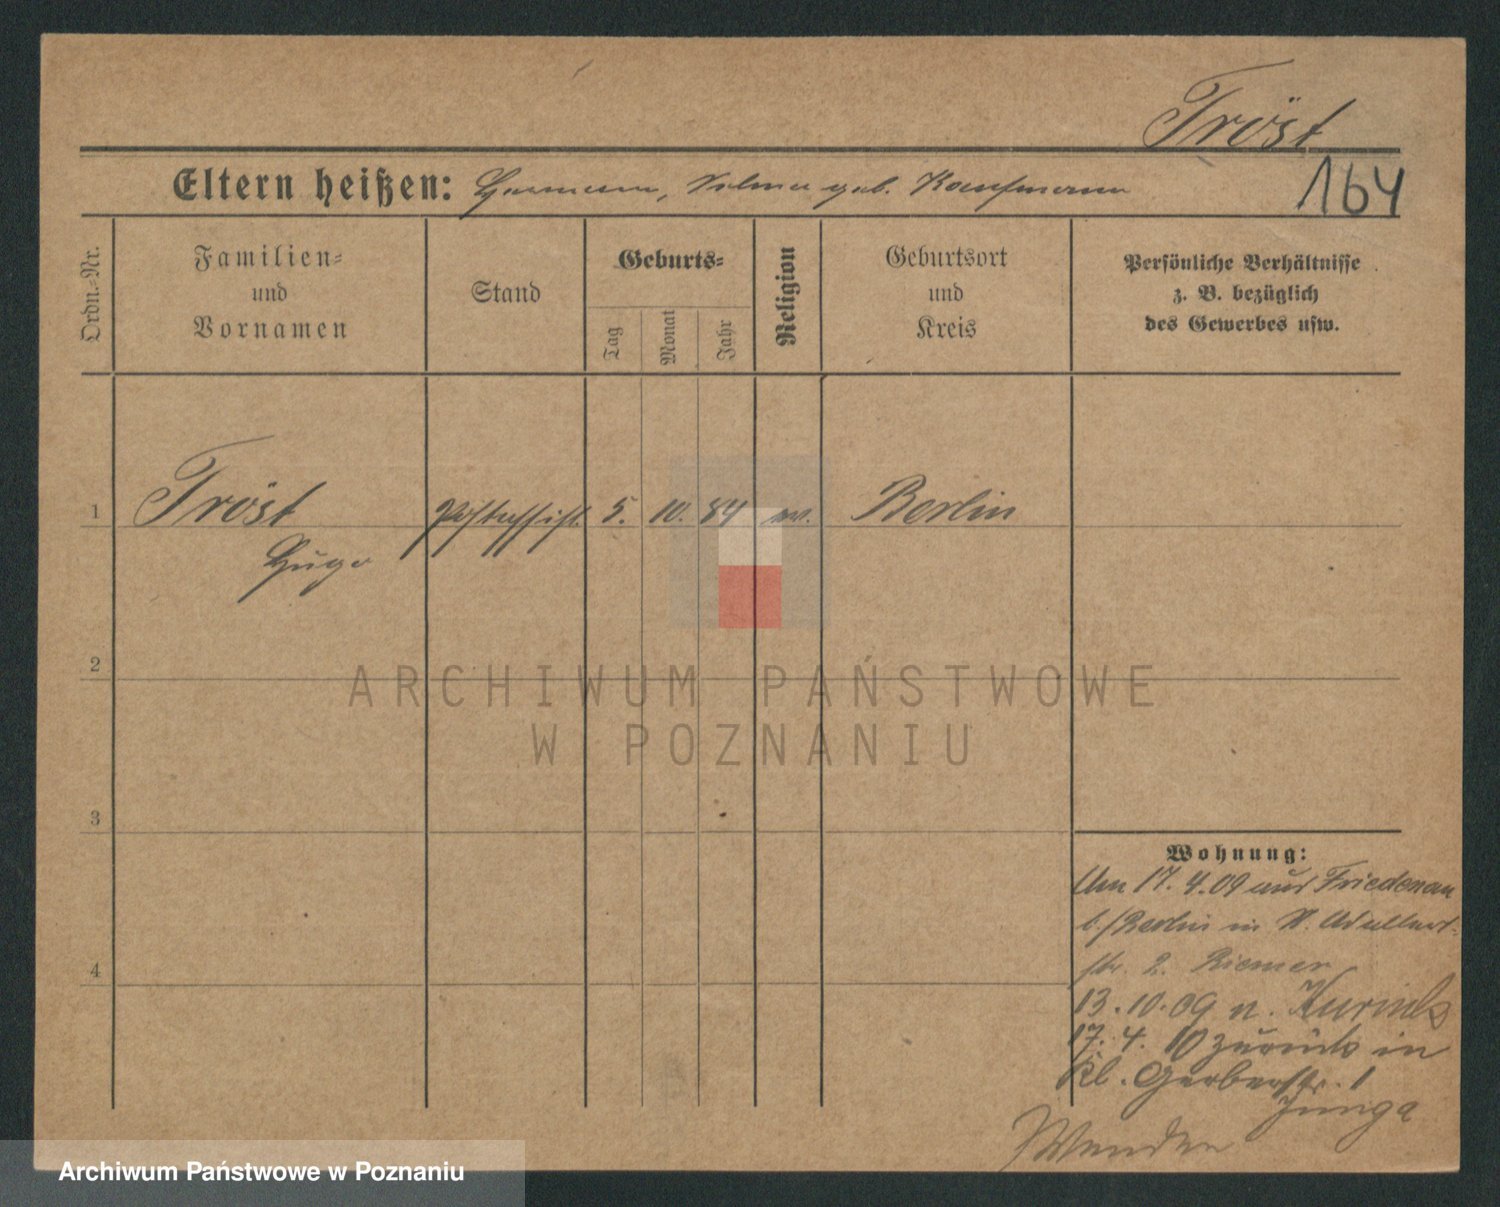 Tröst
Eltern heißen: Hermann, Selma geb. Kaufmann
164
Ordn.-Nr.
Familien-
und
Vornamen
Stand
Geburts-
Tag
Monat
Jahr
Religion
Geburtsort
und
Kreis
Persönliche Verhältnisse
z. B. bezüglich
des Gewerbes usw.
1 Tröst Postassist. 5. 10. 84 ev. Berlin
Hugo
2
ARCHIWUM PAŃSTWOWE
W POZNANIU
3
4
Wohnung:
Am 17. 4. 09 aus Friedenau
b/Berlin in
str. 2. Riemer
13. 10. 09 n.
17. 4. 10 zurück in
Kl. Gerberstr. 1
Junga
Archiwum Państwowe w Poznaniu